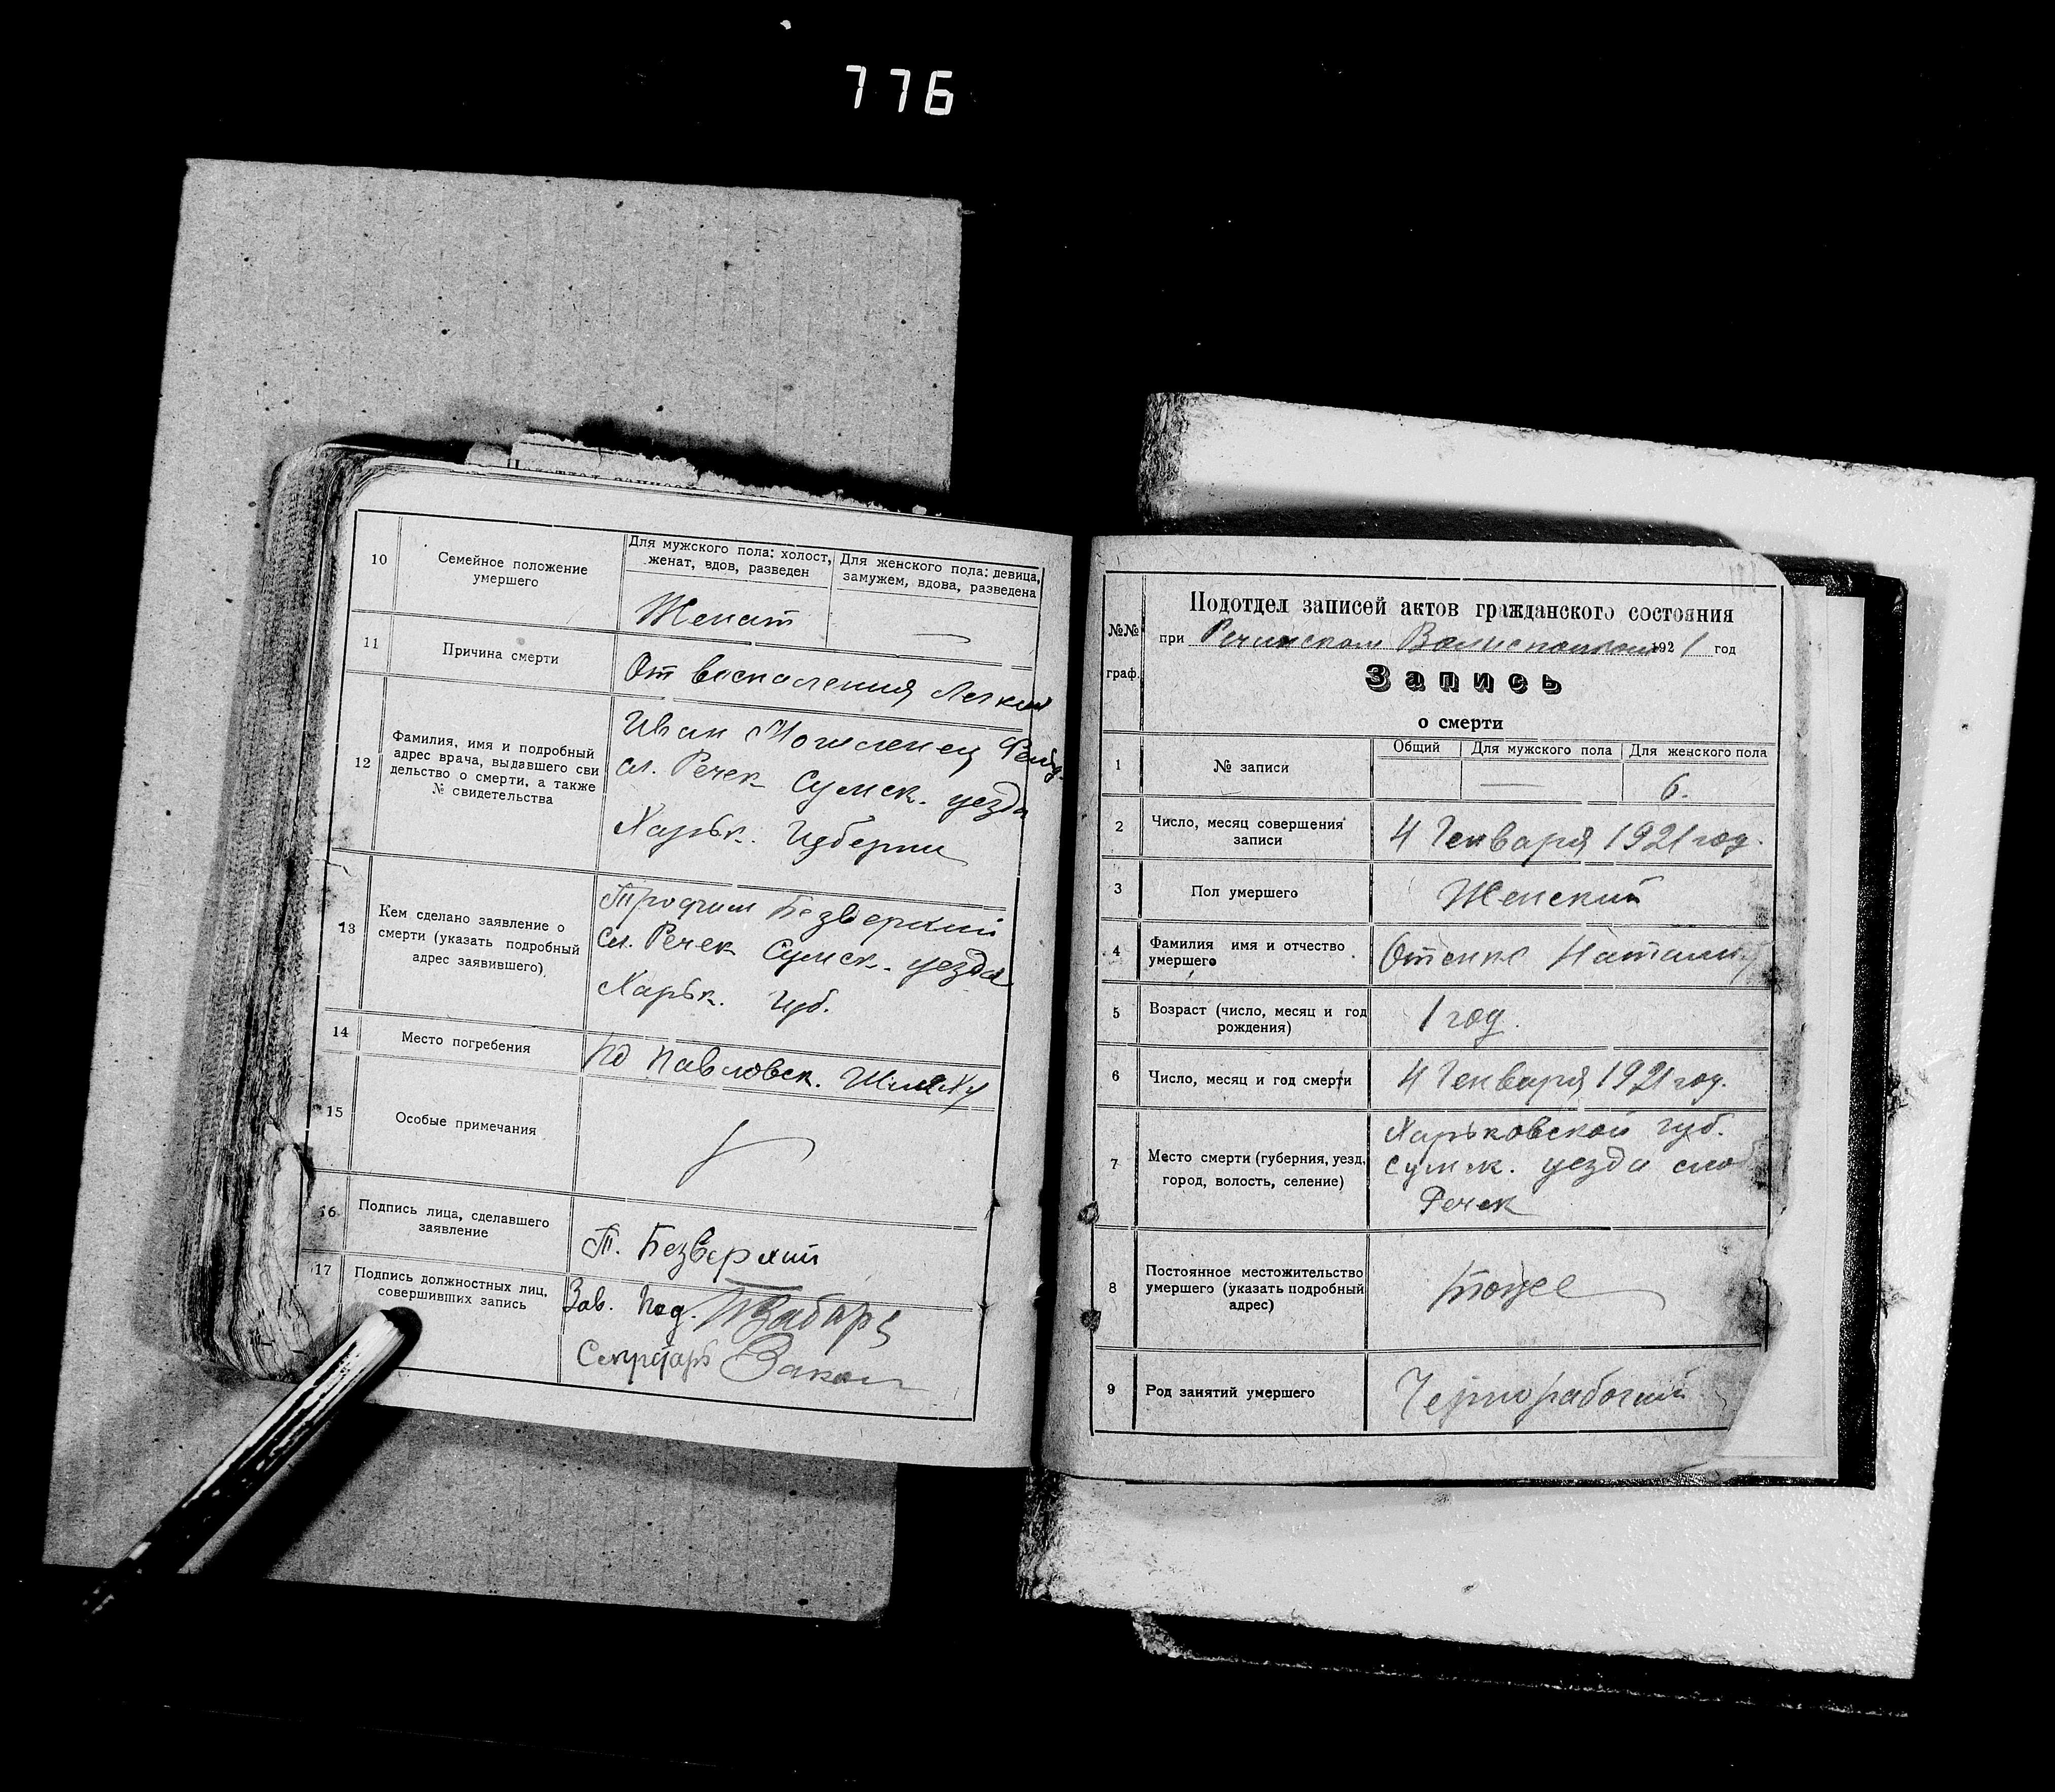 776
10
Семейное положение
умершего
Для мужского пола: холост,
женат, вдов, разведен
Для женского пола: девица,
замужем, вдова, разведена
Женат
11
Причина смерти
От воспаления Легких
12
Фамилия, имя и подробный
адрес врача, выдавшего сви
дельство о смерти, а также
№ свидетельства
Иван
сл. Речек Сумск. уезда
Харьк. Губерни
13
Кем сделано заявление о
смерти (указать подробный
адрес заявившего)
Трофим Безверхий
сл. Речек Сумск. уезда
Харьк. губ.
14
Место погребения
по Павловск. Шляху
15
Особые примечания
16
Подпись лица, сделавшего
заявление
Т. Безверхий
17
Подпись должностных лиц,
совершивших запись
Зав. Под.
Секретарь
№№
граф.
Подотдел записей актов гражданского состояния
при Речинском Волисполком 1921 год
Запись
о смерти
1
№ записи
Общий
Для мужского пола
Для женского пола
6.
2
Число, месяц совершения
записи
4 Генваря 1921 год.
3
Пол умершего
Женский
4
Фамилия имя и отчество
умершего
5
Возраст (число, месяц и год
рождения)
1 год.
6
Число, месяц и год смерти
4 Генваря 1921 год.
7
Место смерти (губерния, уезд,
город, волость, селение)
Харьковской губ.
Сумск. уезда слоб
Речек
8
Постоянное местожительство
умершего (указать подробный
адрес)
тоже
9
Род занятий умершего
Чернорабочий